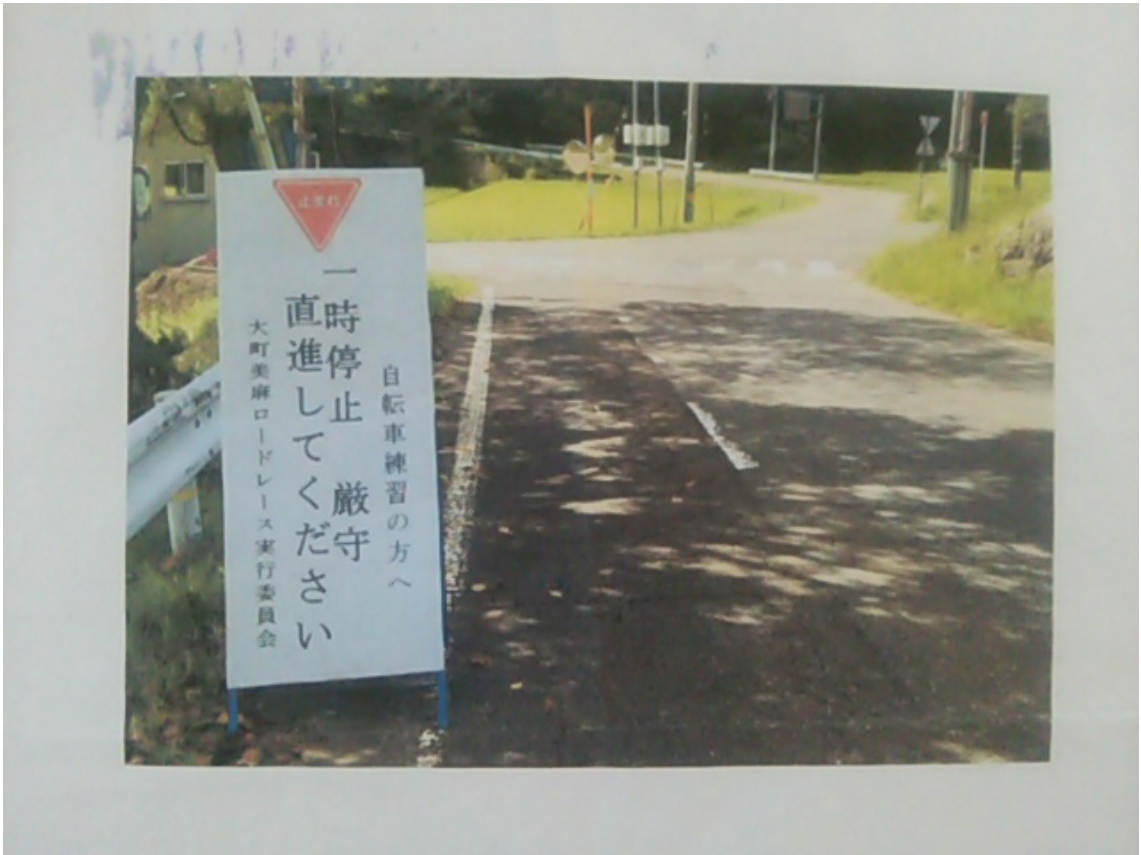 止まれ
自転車練習の方へ
一時停止 厳守
直進してください
大町美麻ロードレース実行委員会